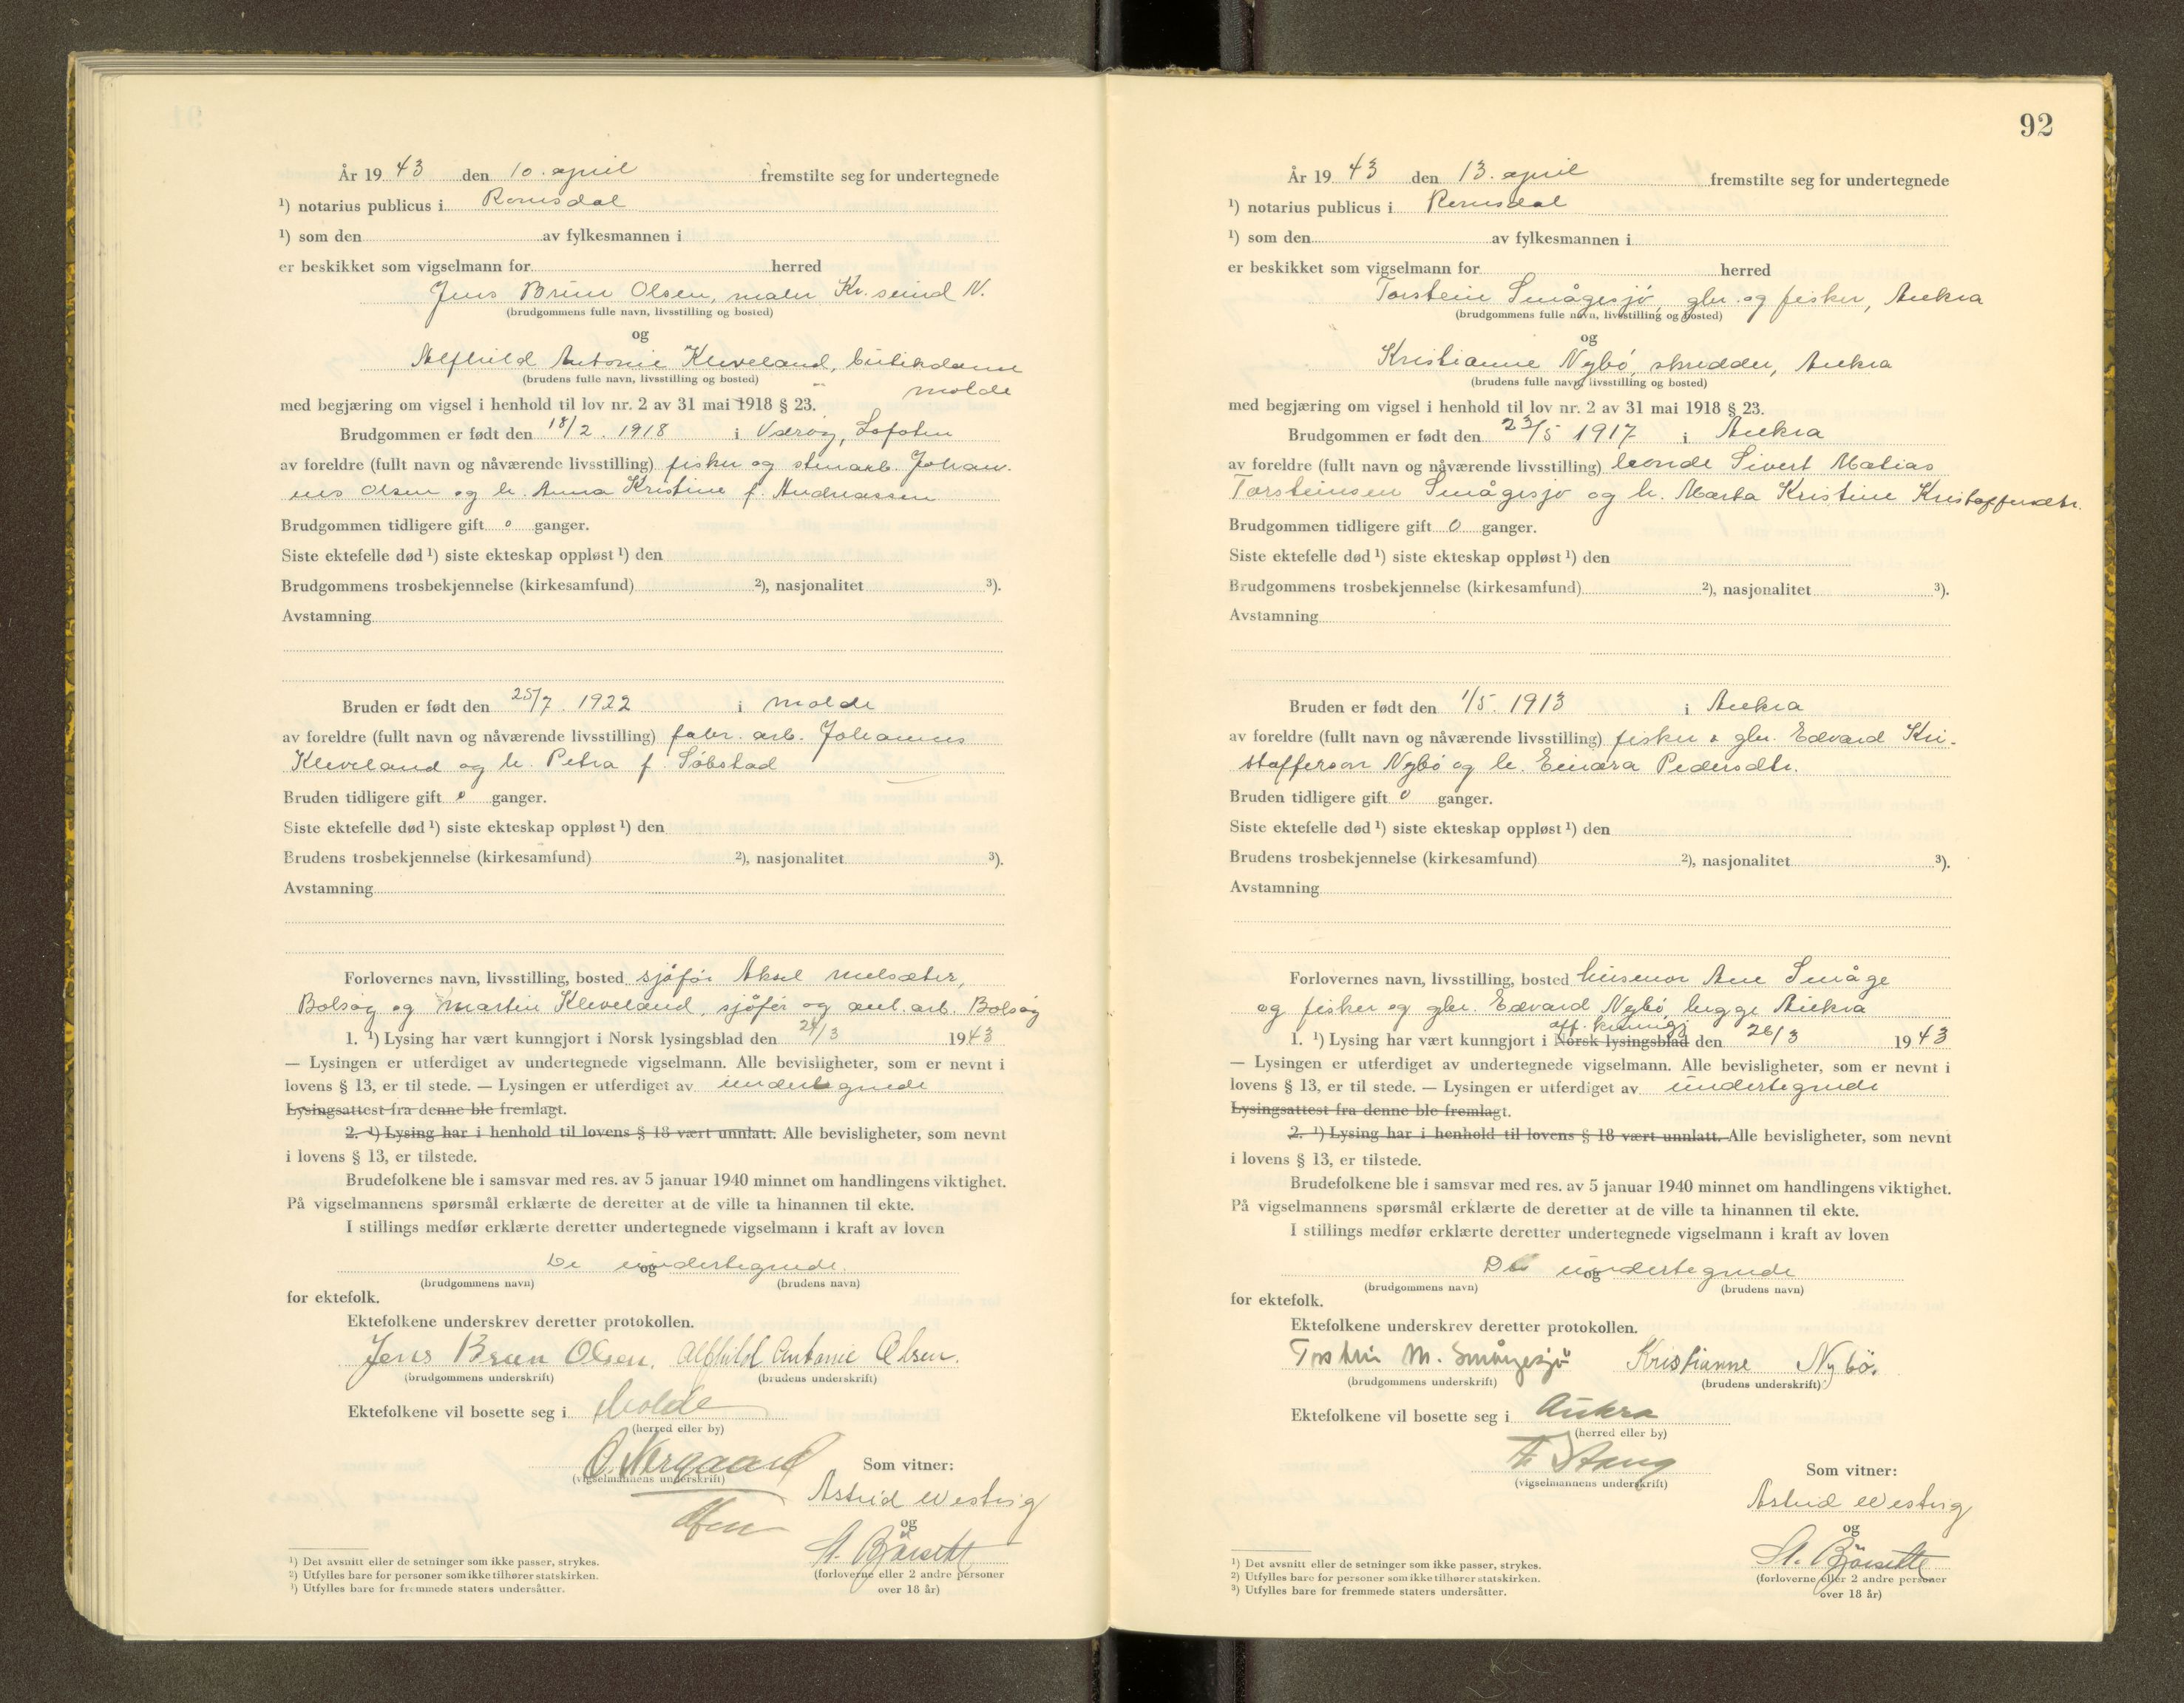 År 19 43 den 10. april fremstilte seg for undertegnede
¹) notarius publicus i Romsdal
¹) som den av fylkesmannen i
er beskikket som vigselmann for herred
Jens Brun Olsen, maler Kr.sund N.
(brudgommens fulle navn, livsstilling og bosted)
og
Alfhild Antonie Kleveland, butikdame
(brudens fulle navn, livsstilling og bosted)
Molde
med begjæring om vigsel i henhold til lov nr. 2 av 31 mai 1918 § 23.
Brudgommen er født den 18/2. 1918 i Værøy, Lofoten
av foreldre (fullt navn og nåværende livsstilling) fisker og stenarb. Johan-
nes Olsen og h. Anna Kristine f. Andreassen
Brudgommen tidligere gift 0 ganger.
Siste ektefelle død ¹) siste ekteskap oppløst ¹) den
Brudgommens trosbekjennelse (kirkesamfund) ²), nasjonalitet ³).
Avstamning
Bruden er født den 25/7. 1922 i Molde
av foreldre (fullt navn og nåværende livsstilling) fabr. arb. Johannes
Kleveland og h. Petra f. Søbstad
Bruden tidligere gift 0 ganger.
Siste ektefelle død ¹) siste ekteskap oppløst ¹) den
Brudens trosbekjennelse (kirkesamfund) ²), nasjonalitet ³).
Avstamning
Forlovernes navn, livsstilling, bosted sjåfør Aksel Melsæter,
Bolsøy og Martin Kleveland, sjåfør og anl. arb. Bolsøy
1. ¹) Lysing har vært kunngjort i Norsk lysingsblad den 24/3 1943
— Lysingen er utferdiget av undertegnede vigselmann. Alle bevisligheter, som er nevnt i
lovens § 13, er til stede. — Lysingen er utferdiget av undertegnede
Lysingsattest fra denne ble fremlagt.
2. ¹) Lysing har i henhold til lovens § 18 vært unnlatt. Alle bevisligheter, som nevnt
i lovens § 13, er tilstede.
Brudefolkene ble i samsvar med res. av 5 januar 1940 minnet om handlingens viktighet.
På vigselmannens spørsmål erklærte de deretter at de ville ta hinannen til ekte.
I stillings medfør erklærte deretter undertegnede vigselmann i kraft av loven
De undertegnede.
og
(brudgommens navn) (brudens navn)
for ektefolk.
Ektefolkene underskrev deretter protokollen.
Jens Brun Olsen. Alfhild Antonie Olsen.
(brudgommens underskrift) (brudens underskrift)
Ektefolkene vil bosette seg i Molde
(herred eller by)
O. Nergaard
(vigselmannens underskrift)
Som vitner:
Astrid Westvig
og
A. Bjørsett
(forloverne eller 2 andre personer
over 18 år)
¹) Det avsnitt eller de setninger som ikke passer, strykes.
²) Utfylles bare for personer som ikke tilhører statskirken.
³) Utfylles bare for fremmede staters undersåtter.
92
År 19 43 den 13. april fremstilte seg for undertegnede
¹) notarius publicus i Romsdal
¹) som den av fylkesmannen i
er beskikket som vigselmann for herred
Torstein Smågesjø, gbr. og fisker, Aukra
(brudgommens fulle navn, livsstilling og bosted)
og
Kristianne Nybø, skredder, Aukra
(brudens fulle navn, livsstilling og bosted)
med begjæring om vigsel i henhold til lov nr. 2 av 31 mai 1918 § 23.
Brudgommen er født den 23/5 1917 i Aukra
av foreldre (fullt navn og nåværende livsstilling) bonde Sivert Matias
Torsteinsen Smågesjø og h. Marta Kristine Kristoffersdtr.
Brudgommen tidligere gift 0 ganger.
Siste ektefelle død ¹) siste ekteskap oppløst ¹) den
Brudgommens trosbekjennelse (kirkesamfund) ²), nasjonalitet ³).
Avstamning
Bruden er født den 1/5. 1913 i Aukra
av foreldre (fullt navn og nåværende livsstilling) fisker & gbr. Edvard Kri-
stofferson Nybø og h. Einara Pedersdtr.
Bruden tidligere gift 0 ganger.
Siste ektefelle død ¹) siste ekteskap oppløst ¹) den
Brudens trosbekjennelse (kirkesamfund) ²), nasjonalitet ³).
Avstamning
Forlovernes navn, livsstilling, bosted husmor Ane Småge
og fisker og gbr. Edvard Nybø, begge Aukra
off. kunngj.
1. ¹) Lysing har vært kunngjort i Norsk lysingsblad den 26/3 1943
— Lysingen er utferdiget av undertegnede vigselmann. Alle bevisligheter, som er nevnt i
lovens § 13, er til stede. — Lysingen er utferdiget av undertegnede
Lysingsattest fra denne ble fremlagt.
2. ¹) Lysing har i henhold til lovens § 18 vært unnlatt. Alle bevisligheter, som nevnt
i lovens § 13, er tilstede.
Brudefolkene ble i samsvar med res. av 5 januar 1940 minnet om handlingens viktighet.
På vigselmannens spørsmål erklærte de deretter at de ville ta hinannen til ekte.
I stillings medfør erklærte deretter undertegnede vigselmann i kraft av loven
De undertegnede
og
(brudgommens navn) (brudens navn)
for ektefolk.
Ektefolkene underskrev deretter protokollen.
Torstein M. Smågesjø Kristianne Nybø.
(brudgommens underskrift) (brudens underskrift)
Ektefolkene vil bosette seg i Aukra
(herred eller by)
Stang
(vigselmannens underskrift)
Som vitner:
Astrid Westvig
og
A. Bjørsett
(forloverne eller 2 andre personer
over 18 år)
¹) Det avsnitt eller de setninger som ikke passer, strykes.
²) Utfylles bare for personer som ikke tilhører statskirken.
³) Utfylles bare for fremmede staters undersåtter.